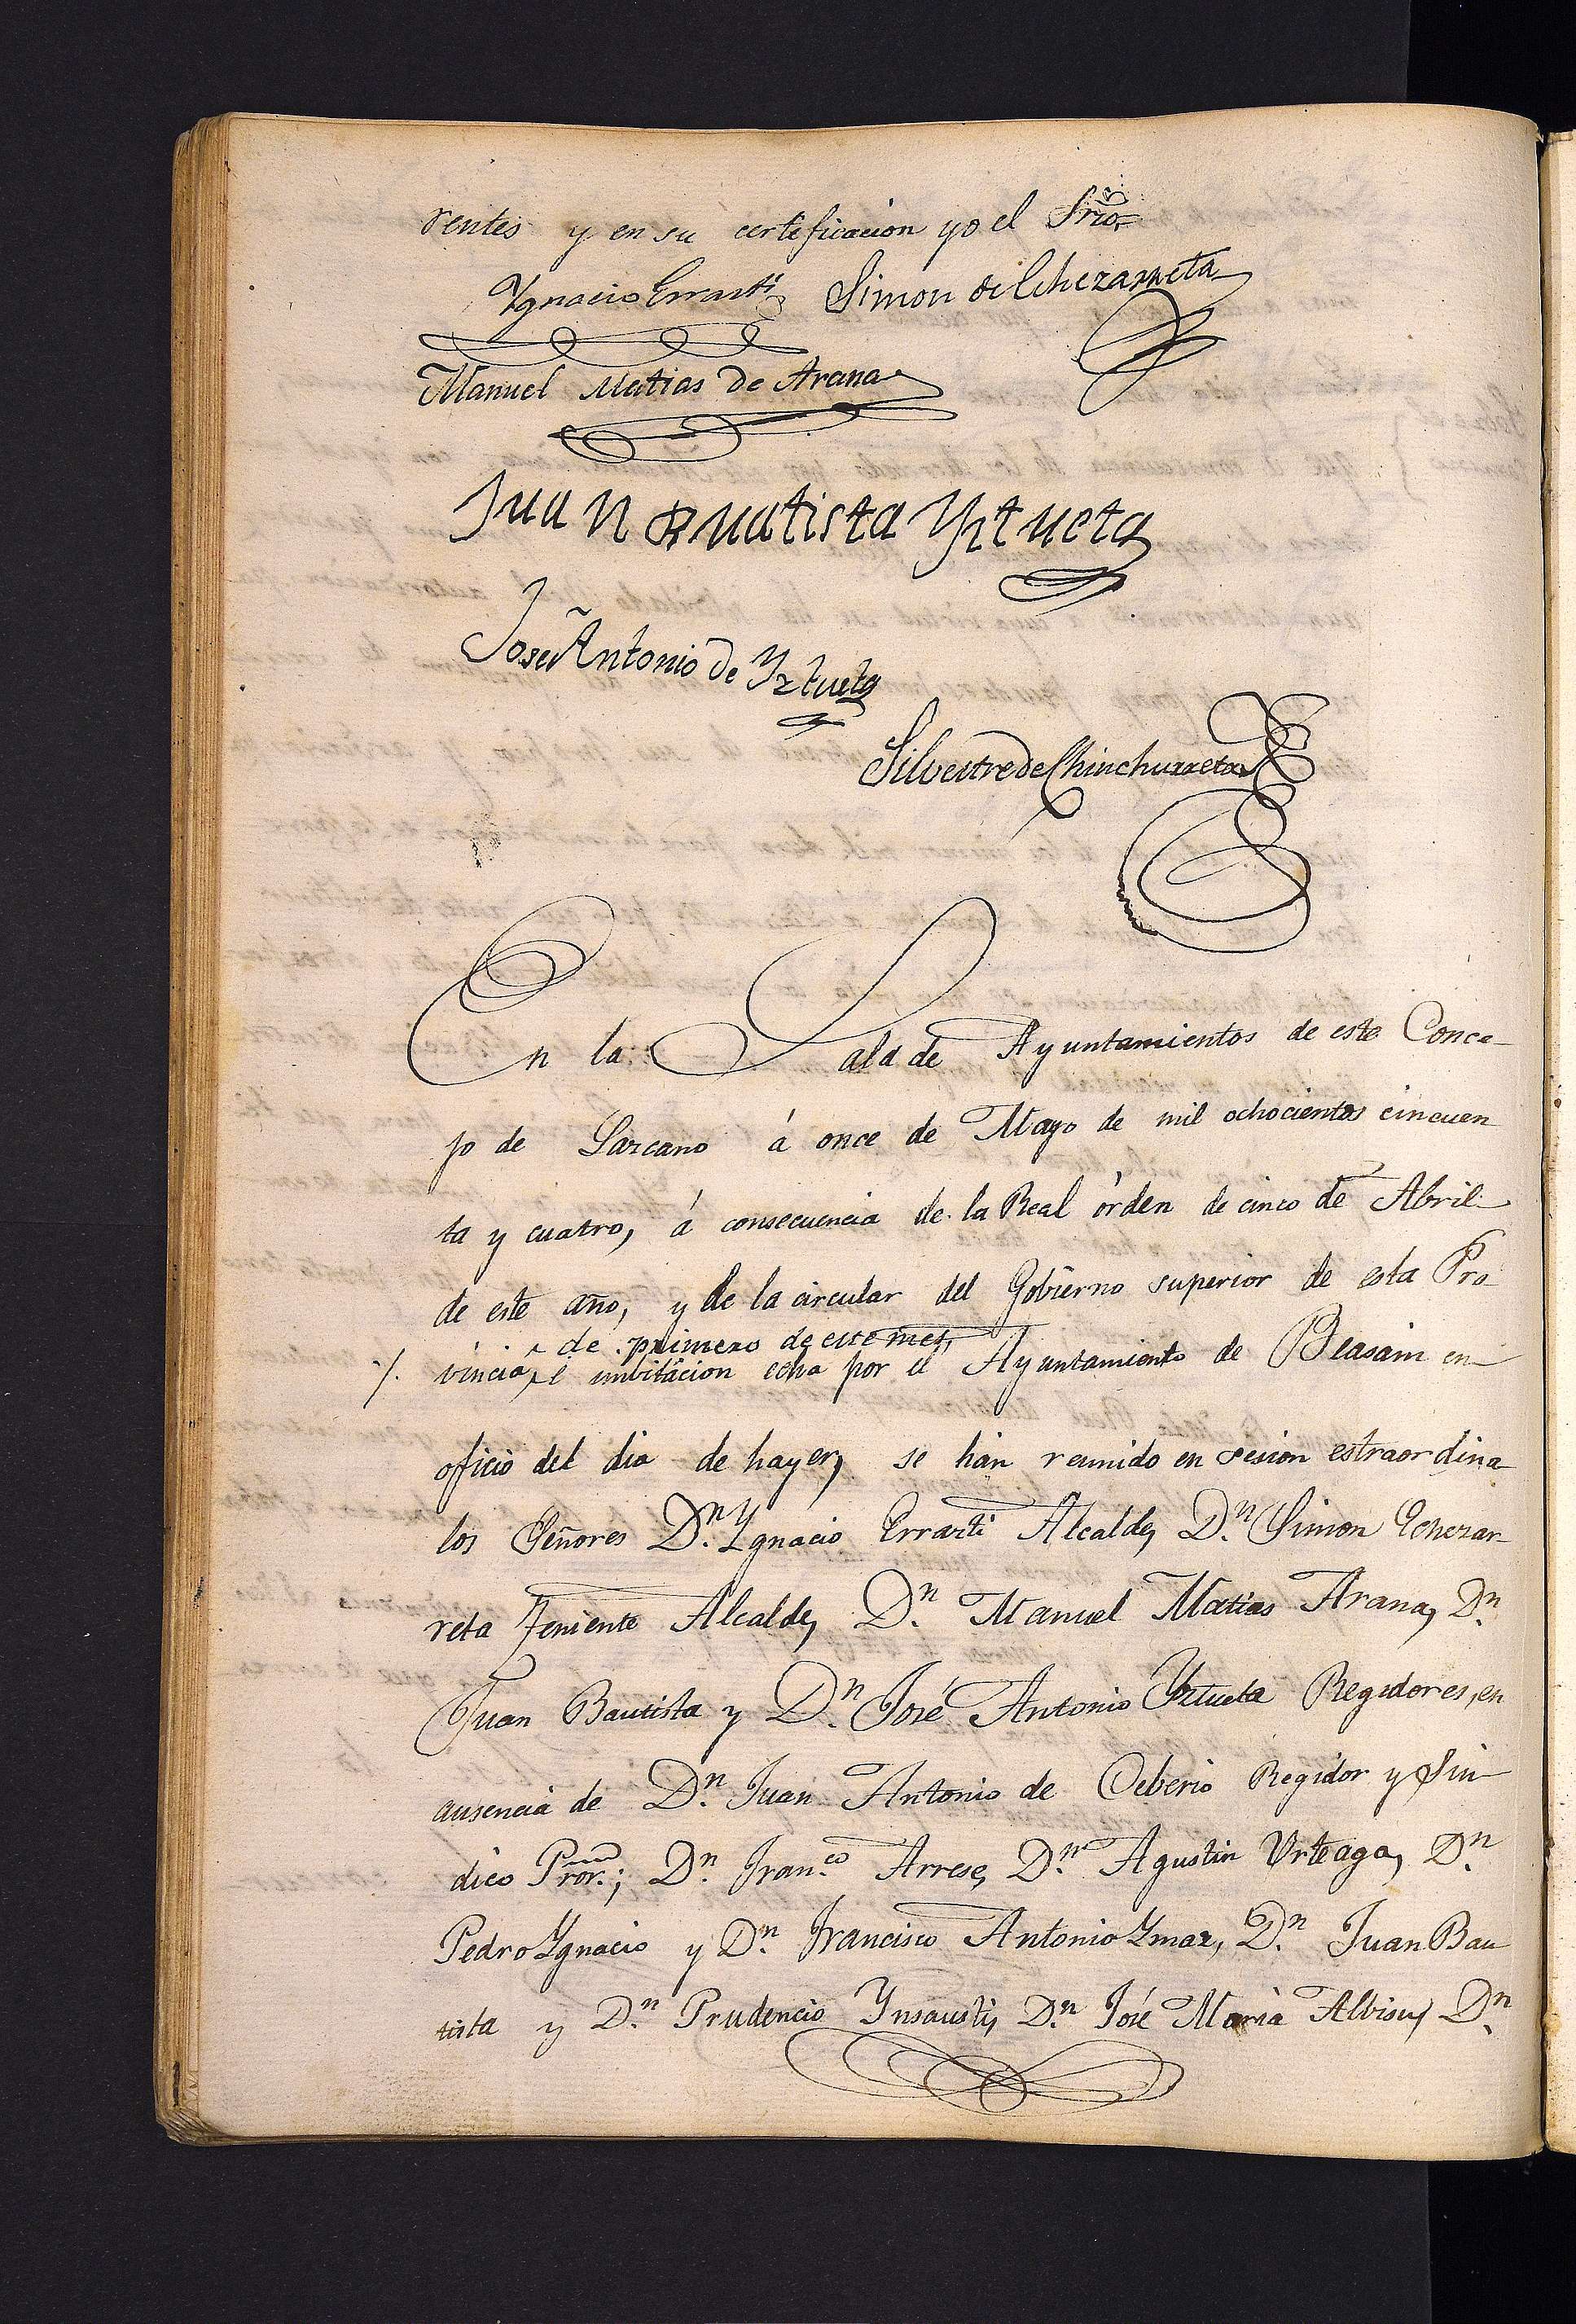 rentes y en su certificacion yo el Srio=
Ygnacio Errasti Simon de Echezarreta
Manuel Matias de Arana
Juan Bautista Yztueta
José Antonio de Yztueta
Silvestre de Chinchurreta
En la Sala de Ayuntamientos de este Conce-
jo de Lazcano á once de Mayo de mil ochocientos cincuen
ta y cuatro, á consecuencia de la Real órden de cinco de Abril
de este año, y de la circular del Gobierno superior de esta Pro
de primero de este mes,
·/. vincia, é imbitacion echa por el Ayuntamiento de Beasain en
oficio del dia de hayer, se han reunido en sesion estraordina
los Señores Dn. Ygnacio Errazti Alcalde, Dn. Simon Echezar-
reta Teniente Alcalde, Dn. Manuel Matias Arana, Dn.
Juan Bautista y Dn. José Antonio Yztueta Regidores, en
ausencia de Dn. Juan Antonio de Ceberio Regidor y Sin
dico Pror.; Dn. Franco. Arrese, Dn. Agustin Urteaga, Dn.
Pedro Ygnacio y Dn. Francisco Antonio Ymaz, Dn. Juan Bau
tista y Dn. Prudencio Ynsausti, Dn. José Maria Albisu, Dn.